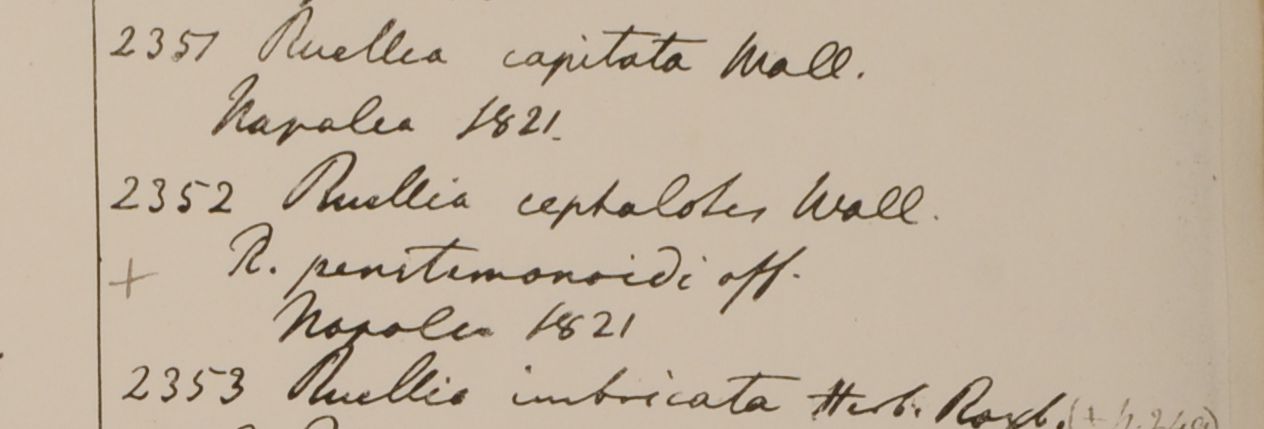 2351 Ruellia capitata Wall.
Napalea 1821.
2352 Ruellia cephalotes Wall.
+ R. penstemonoidi aff.
Napalea 1821
2353 Ruellia imbricata Herb. Roxb.